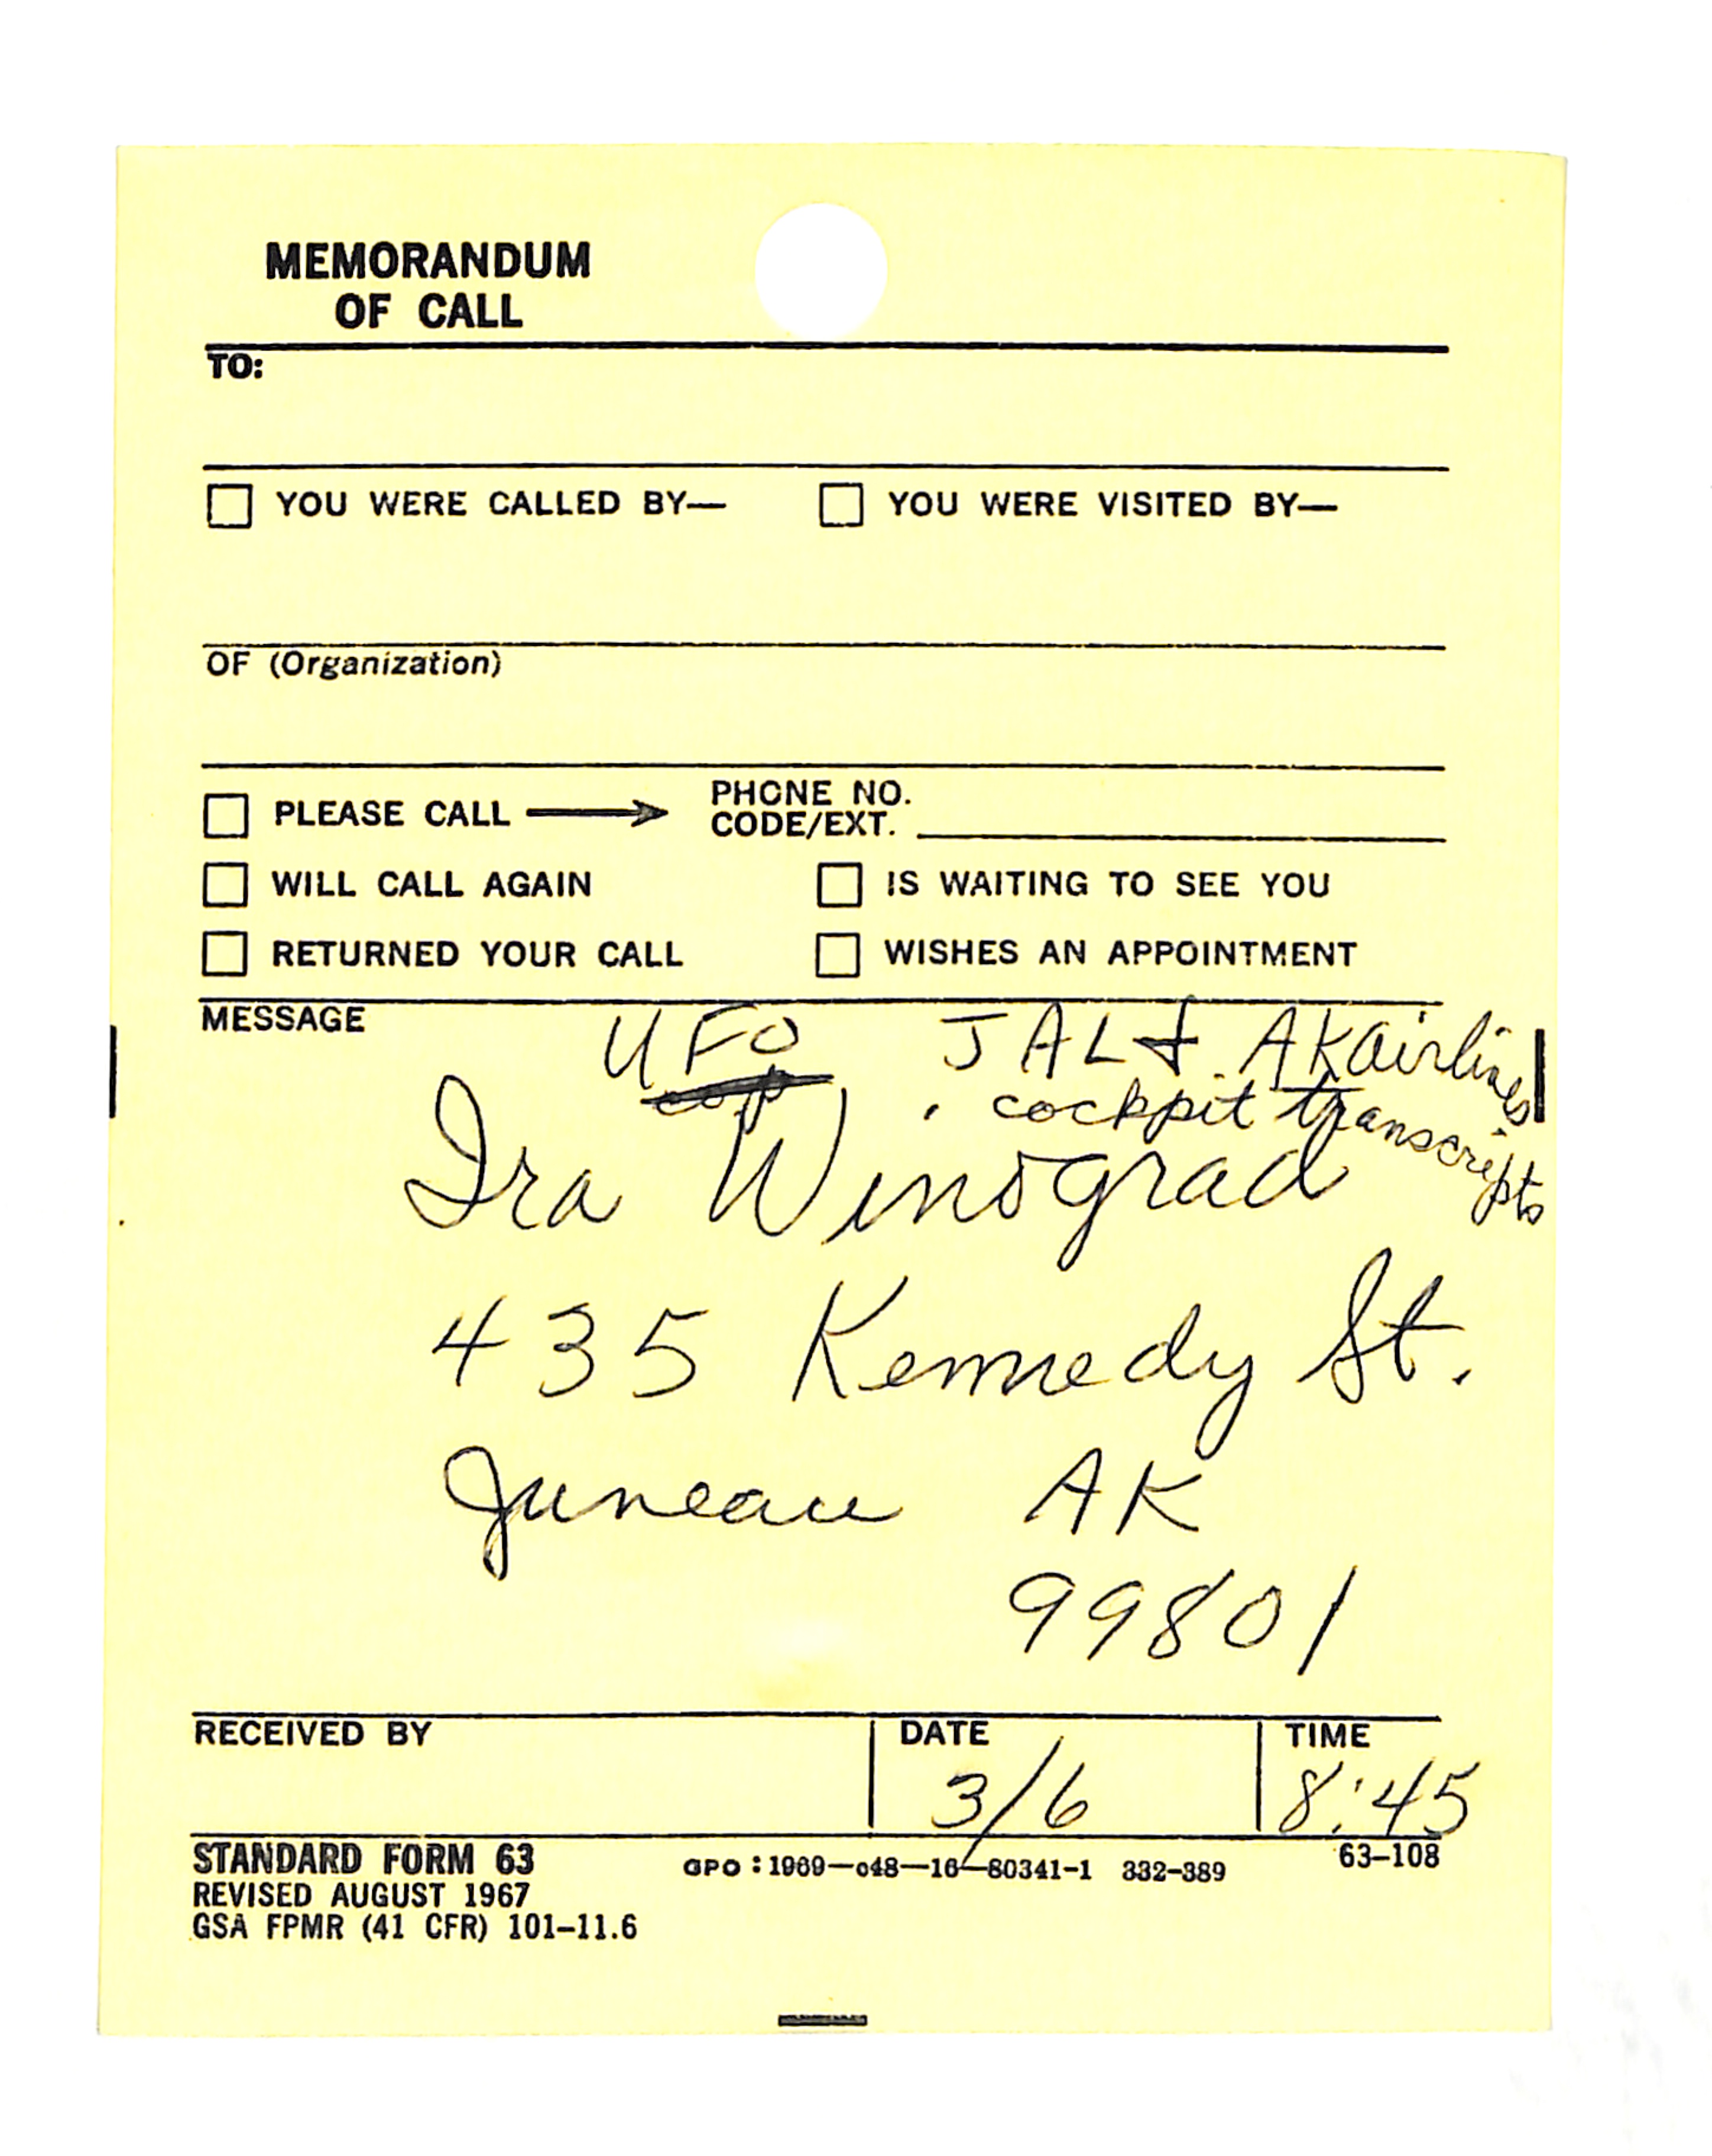 MEMORANDUM
OF CALL
TO:
YOU WERE CALLED BY— YOU WERE VISITED BY—
OF (Organization)
PLEASE CALL → PHONE NO.
CODE/EXT.
WILL CALL AGAIN IS WAITING TO SEE YOU
RETURNED YOUR CALL WISHES AN APPOINTMENT
MESSAGE UFO JAL & AK Airlines
cockpit transcripts
Ira Winograd
435 Kennedy St.
Juneau AK
99801
RECEIVED BY DATE TIME
3/6 8:45
STANDARD FORM 63 GPO : 1969—c48—16—80341-1 332-389 63-108
REVISED AUGUST 1967
GSA FPMR (41 CFR) 101-11.6